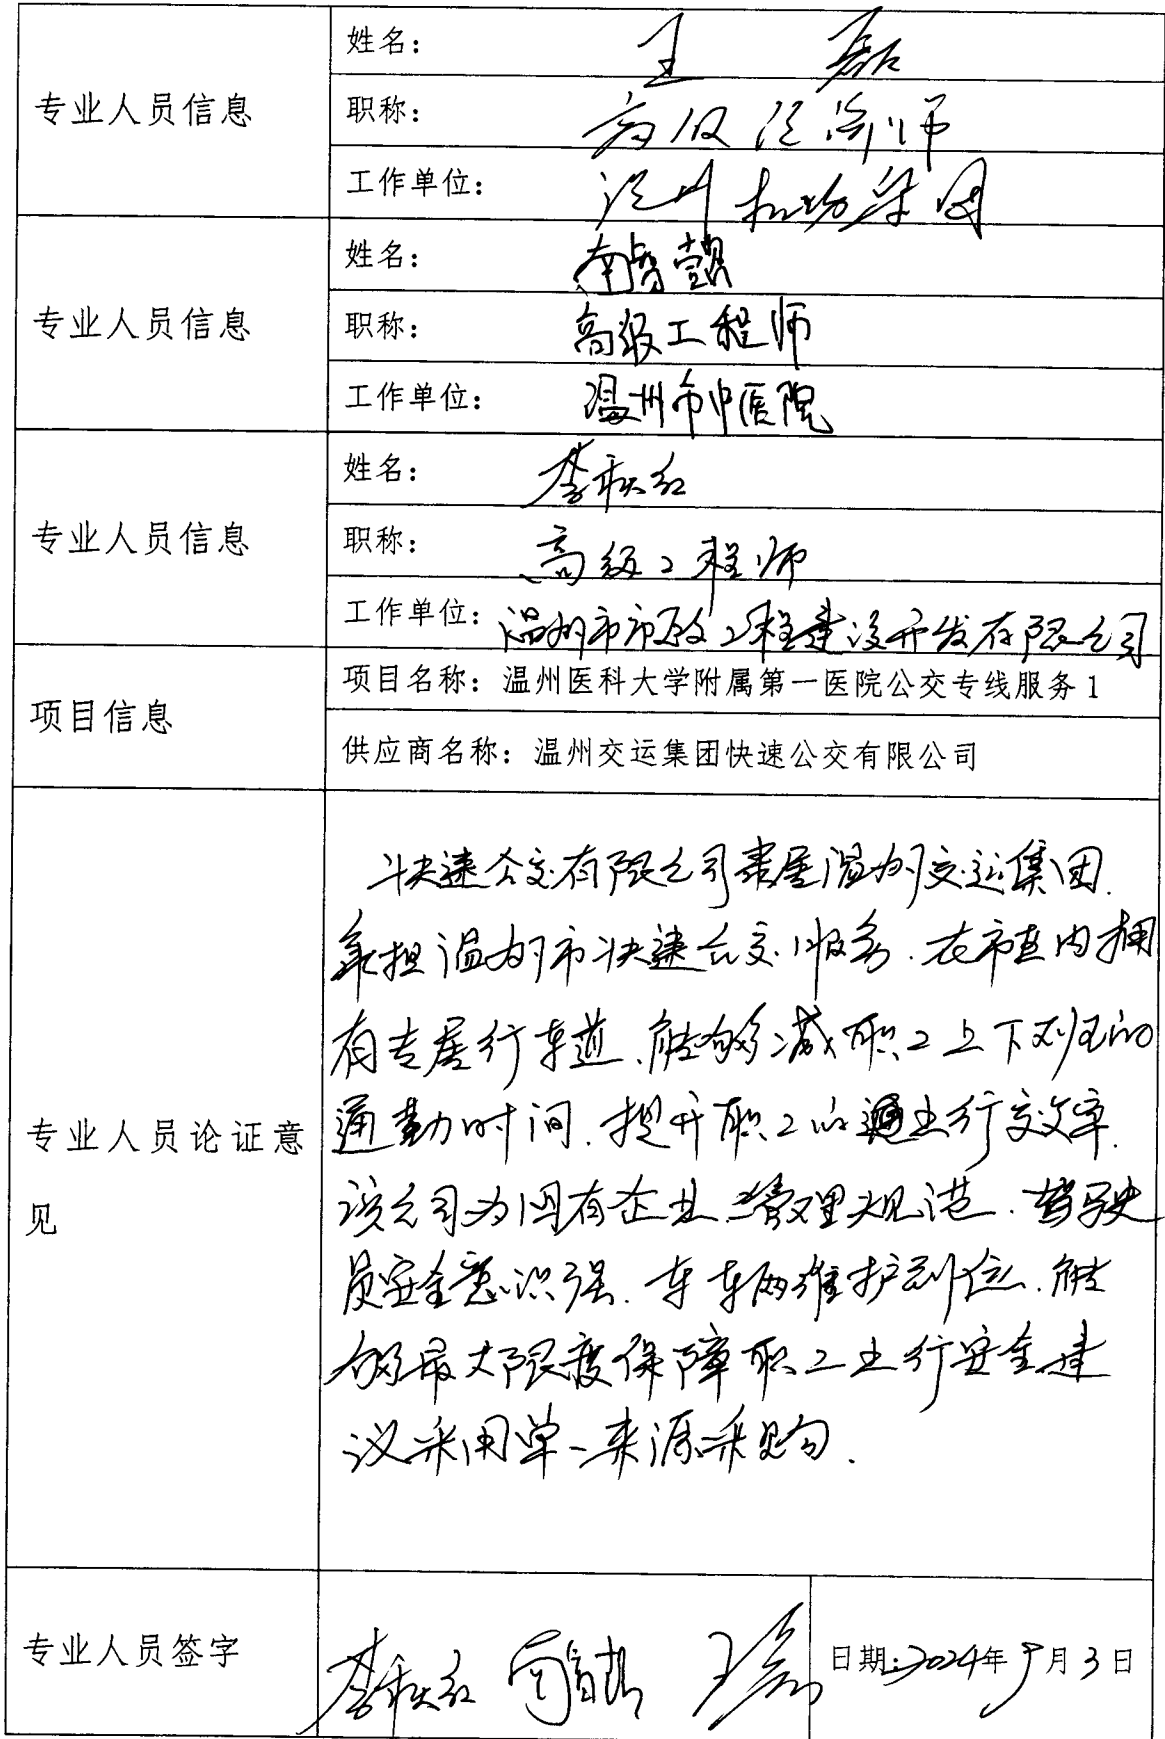 专业人员信息
姓名：王磊
职称：高级经济师
工作单位：温州机场集团
专业人员信息
姓名：南
职称：高级工程师
工作单位：温州市中医院
专业人员信息
姓名：李秋红
职称：高级工程师
工作单位：温州市市政工程建设开发有限公司
项目信息
项目名称：温州医科大学附属第一医院公交专线服务1
供应商名称：温州交运集团快速公交有限公司
专业人员论证意见
快速公交有限公司隶属温州交运集团.
承担温州市快速公交服务.在市区内拥
有专属行车道.能够减职工上下班的
通勤时间.提升职工的出行效率.
该公司为国有企业.管理规范.驾驶
员安全意识强.车车辆维护到位.能
够最大限度保障职工出行安全建
议采用单一来源采购.
专业人员签字
李秋红 王磊
日期：2024年9月3日